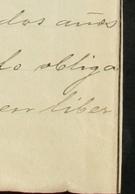 dos años
lo obliga
en liber